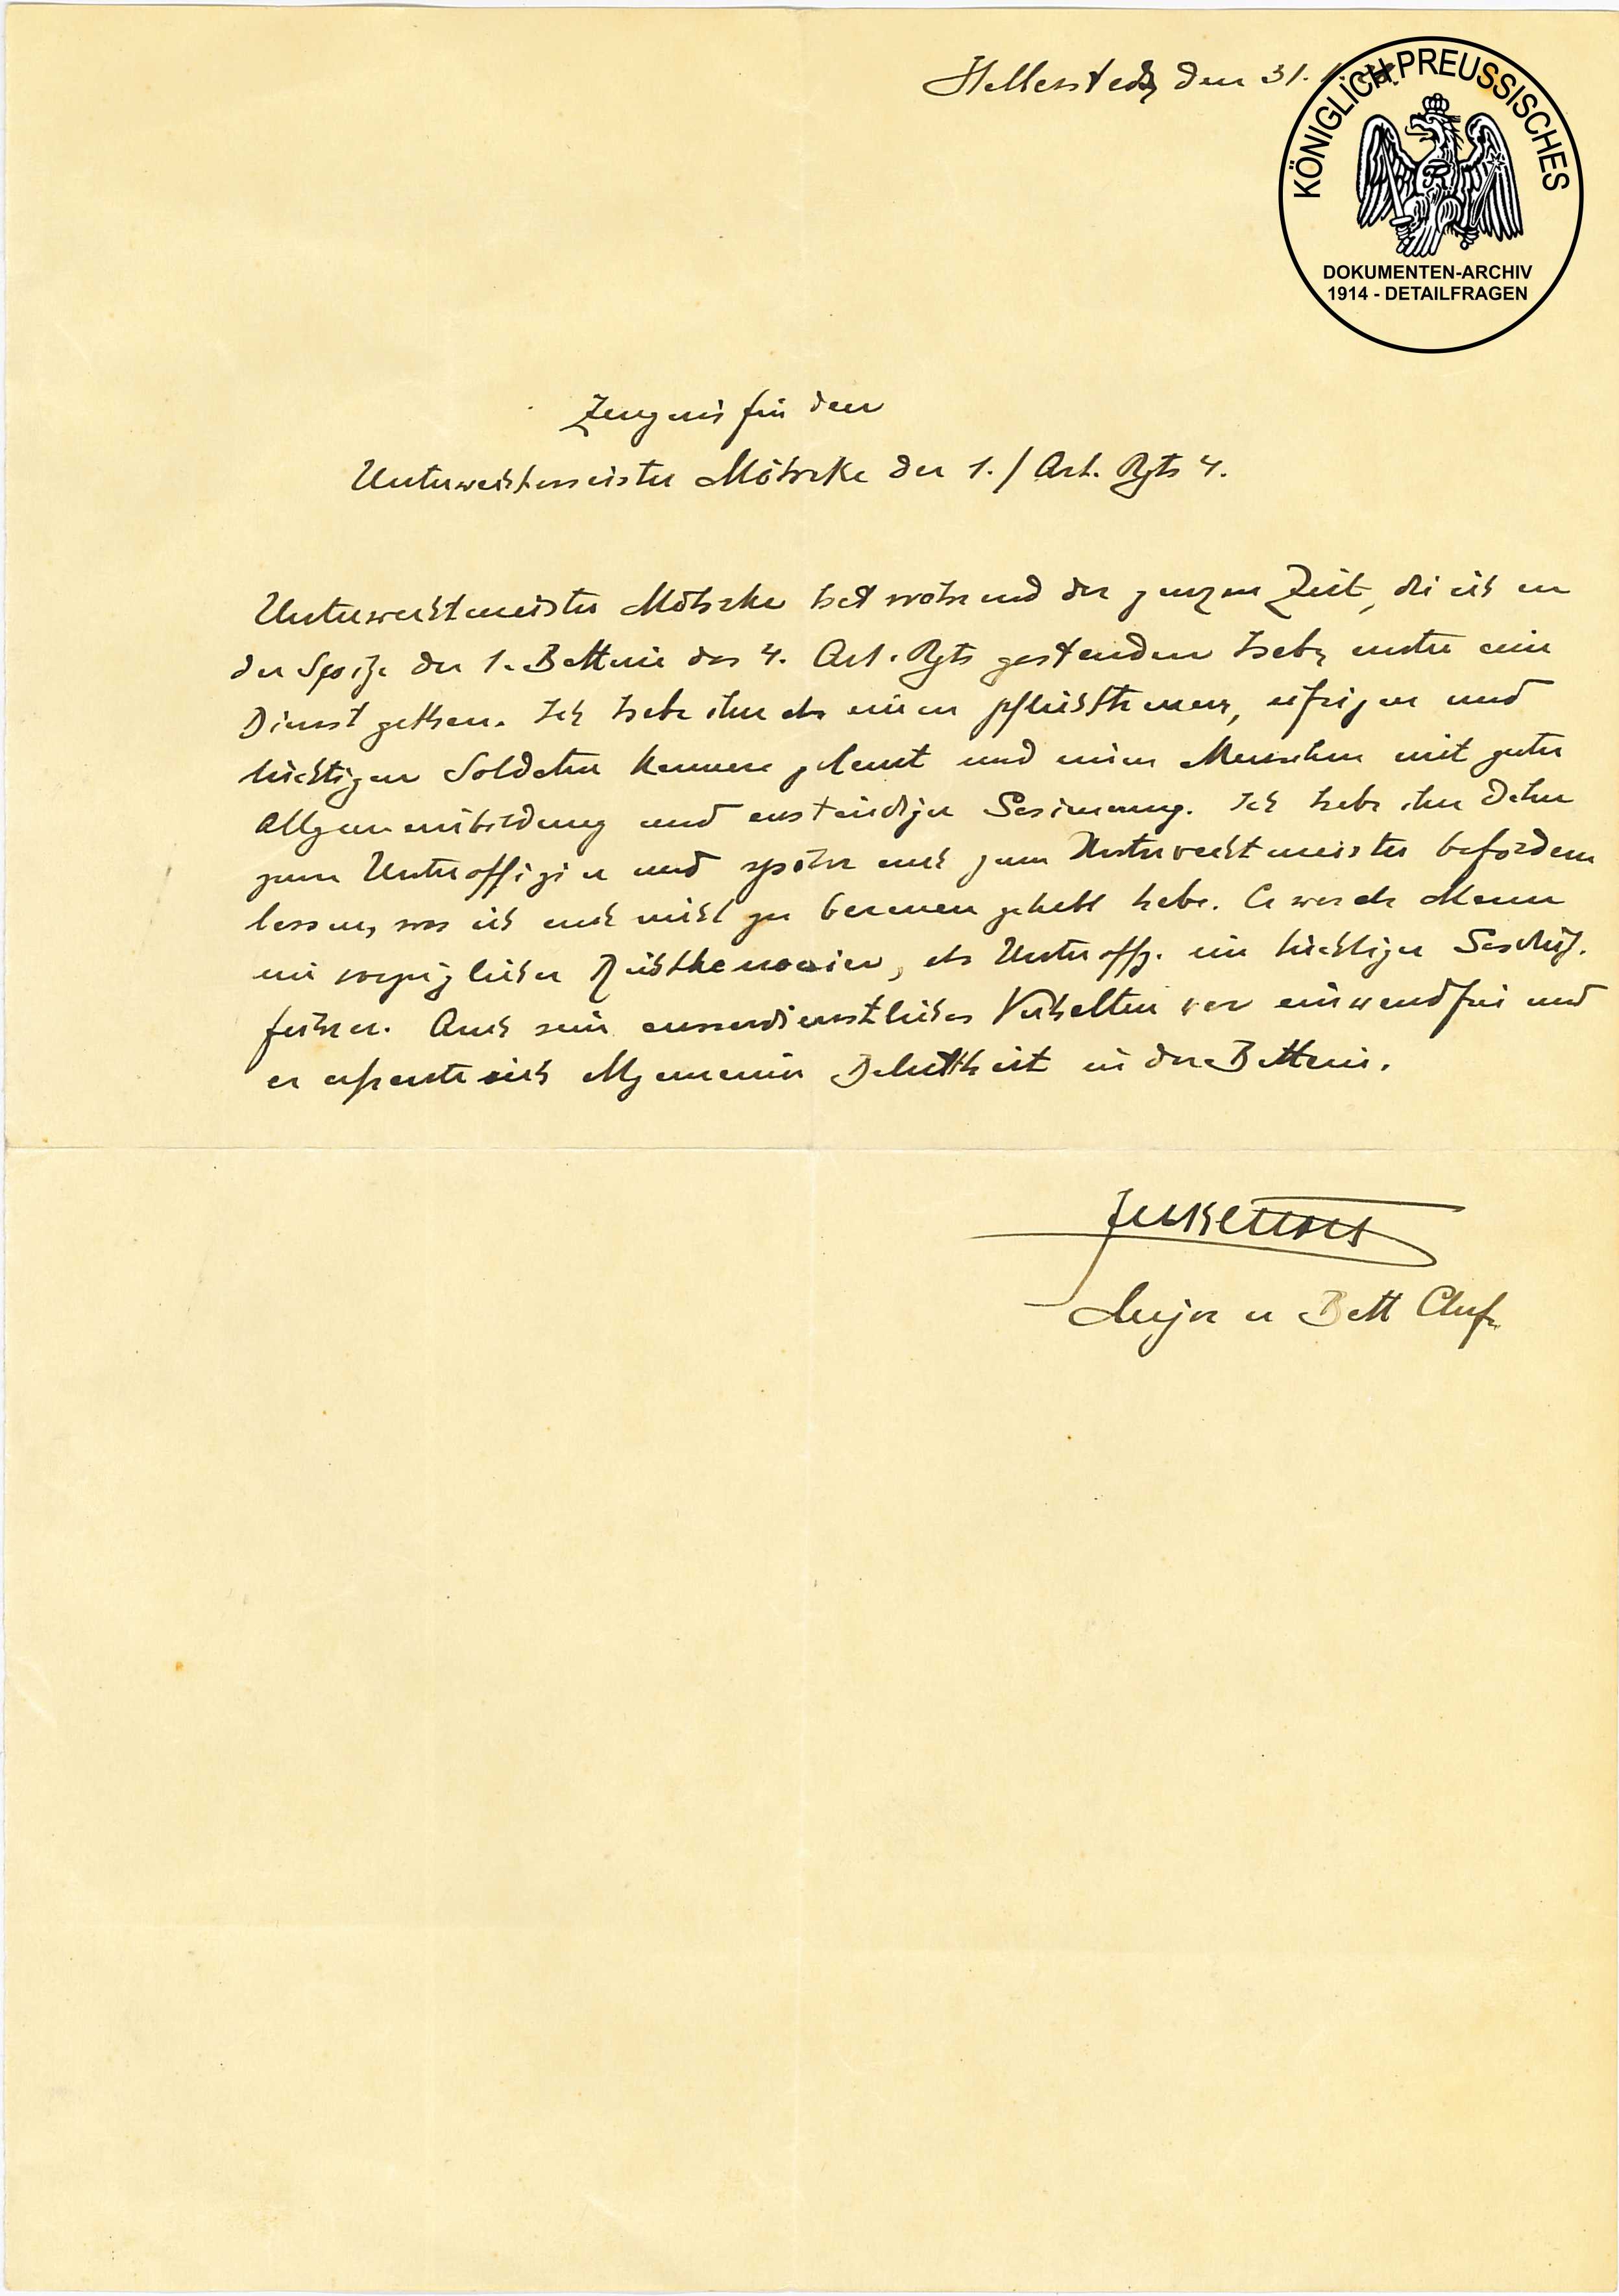 Halberstadt, den 31. 1.
KÖNIGLICH PREUSSISCHES
DOKUMENTEN-ARCHIV
1914 - DETAILFRAGEN
Zeugnis für den
Unterwachtmeister Möhrke der 1./ Art. Rgts 4.
Unterwachtmeister Möhrke hat während der ganzen Zeit, die ich an
der Spitze der 1. Batterie des 4. Art. Rgts gestanden habe, unter mir
Dienst gethan. Ich habe ihn als einen pflichttreuen, eifrigen und
tüchtigen Soldaten kennen gelernt und einen Menschen mit guter
Allgemeinbildung und anständiger Gesinnung. Ich habe ihn daher
zum Unteroffizier und später auch zum Unterwachtmeister befördern
lassen, was ich auch nicht zu bereuen gehabt habe. Er war als Mann
ein vorzüglicher Richtkanonier, als Unteroffz. ein tüchtiger Geschütz-
führer. Auch sein ausserdienstliches Verhalten war einwandfrei und
er erfreute sich allgemeiner Beliebtheit in der Batterie.
Major u Batt Chef.